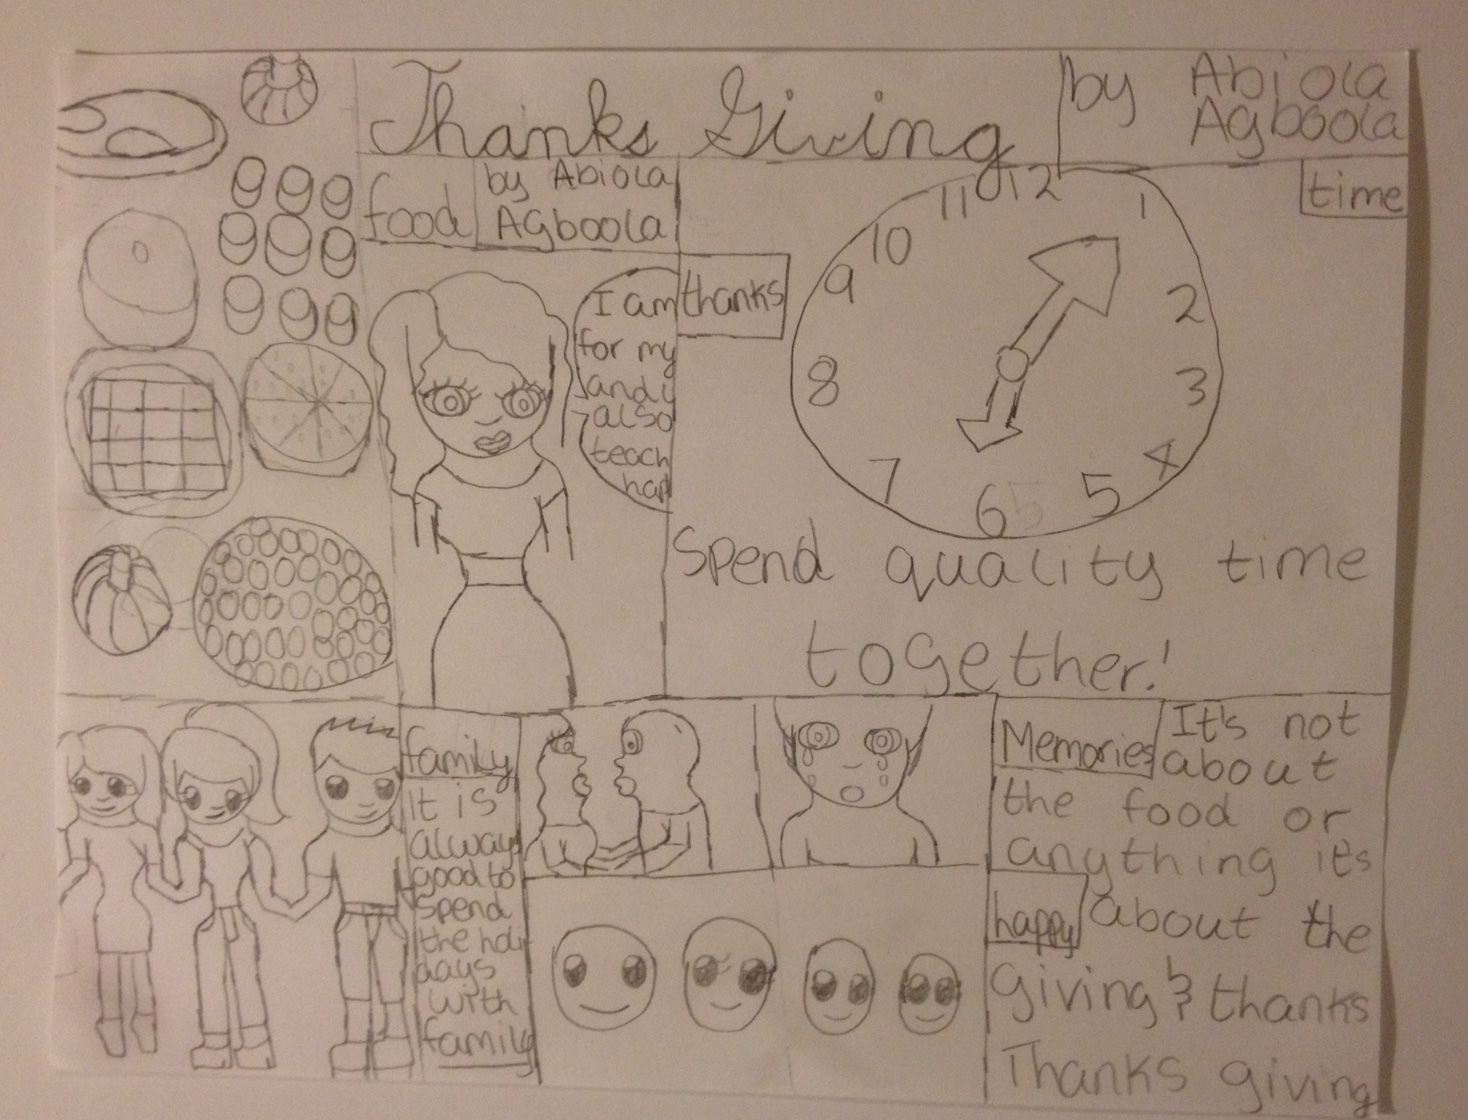 Thanks Giving
by Abiola
Agboola
food
by Abiola
Agboola
time
I am
for my
also
teach
thanks
11 12 1
10 2
9 3
8 4
7 6 5
Spend quality time
together!
family
It is
always
good to
spend
the holi
days
with
family
Memories
It's not
about
the food or
anything it's
happy
about the
giving & thanks
Thanks giving